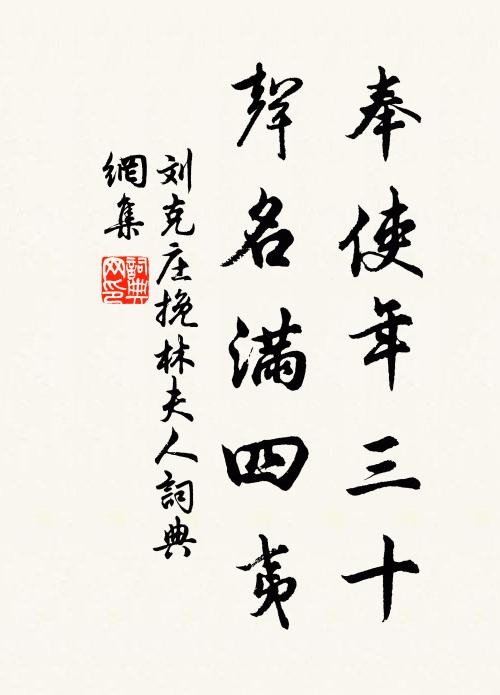 奉使年三十
聲名滿四夷
刘克庄挽林夫人詞典
網集
詞典
網印